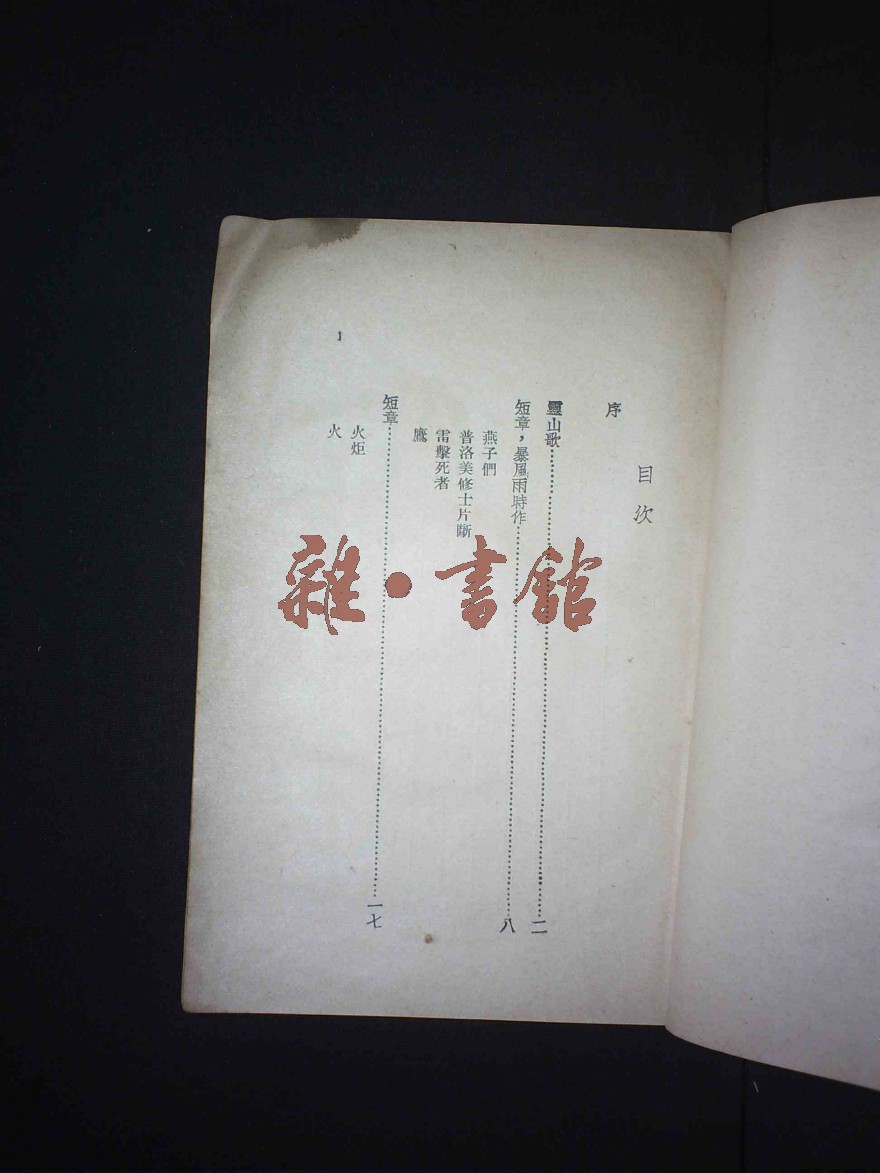 目次
序
靈山歌……二
短章，暴風雨時作……八
燕子們
普洛美修士片斷
雷擊死者
鷹
短章……一七
火炬
火
1
雜·書館